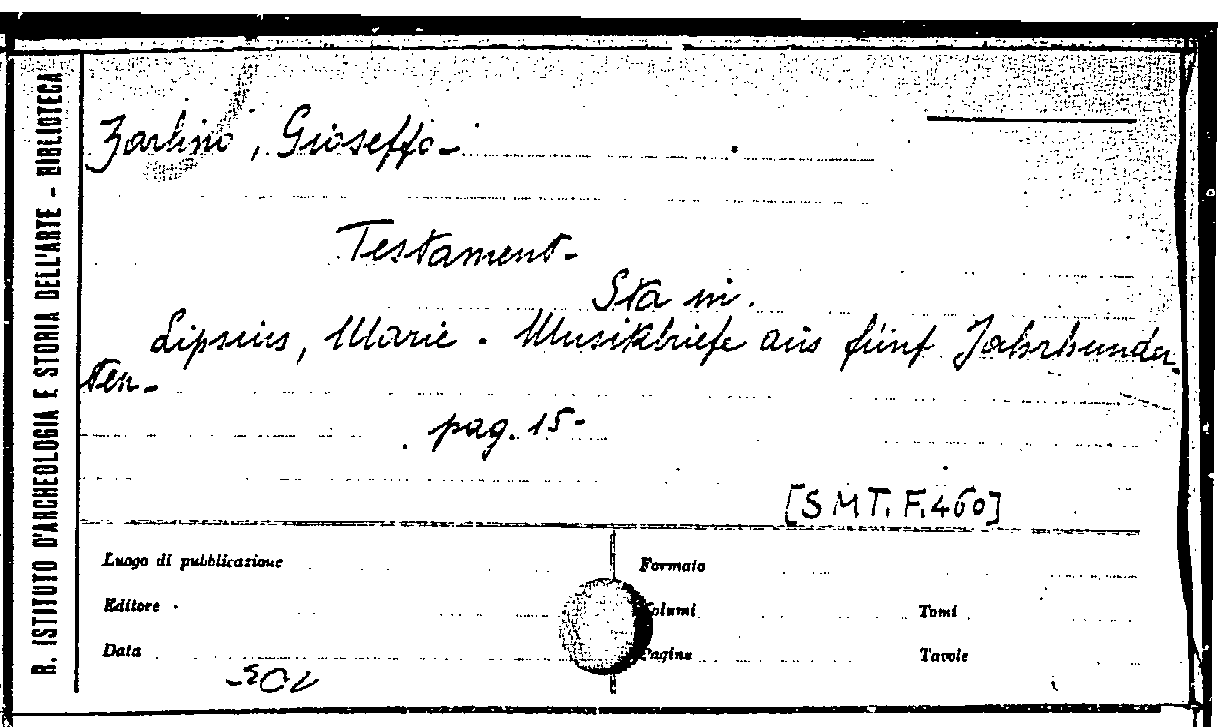 R. ISTITUTO D'ARCHEOLOGIA E STORIA DELL'ARTE - BIBLIOTECA
Zarlino, Gioseffo-
Testament-
Sta in.
Lipsius, Marie - Musikbriefe aus fünf Jahrhunder
ten-
pag. 15-
[SMT. F.460]
Luogo di pubblicazione
Formato
Editore
Volumi
Tomi
Data
Pagine
Tavole